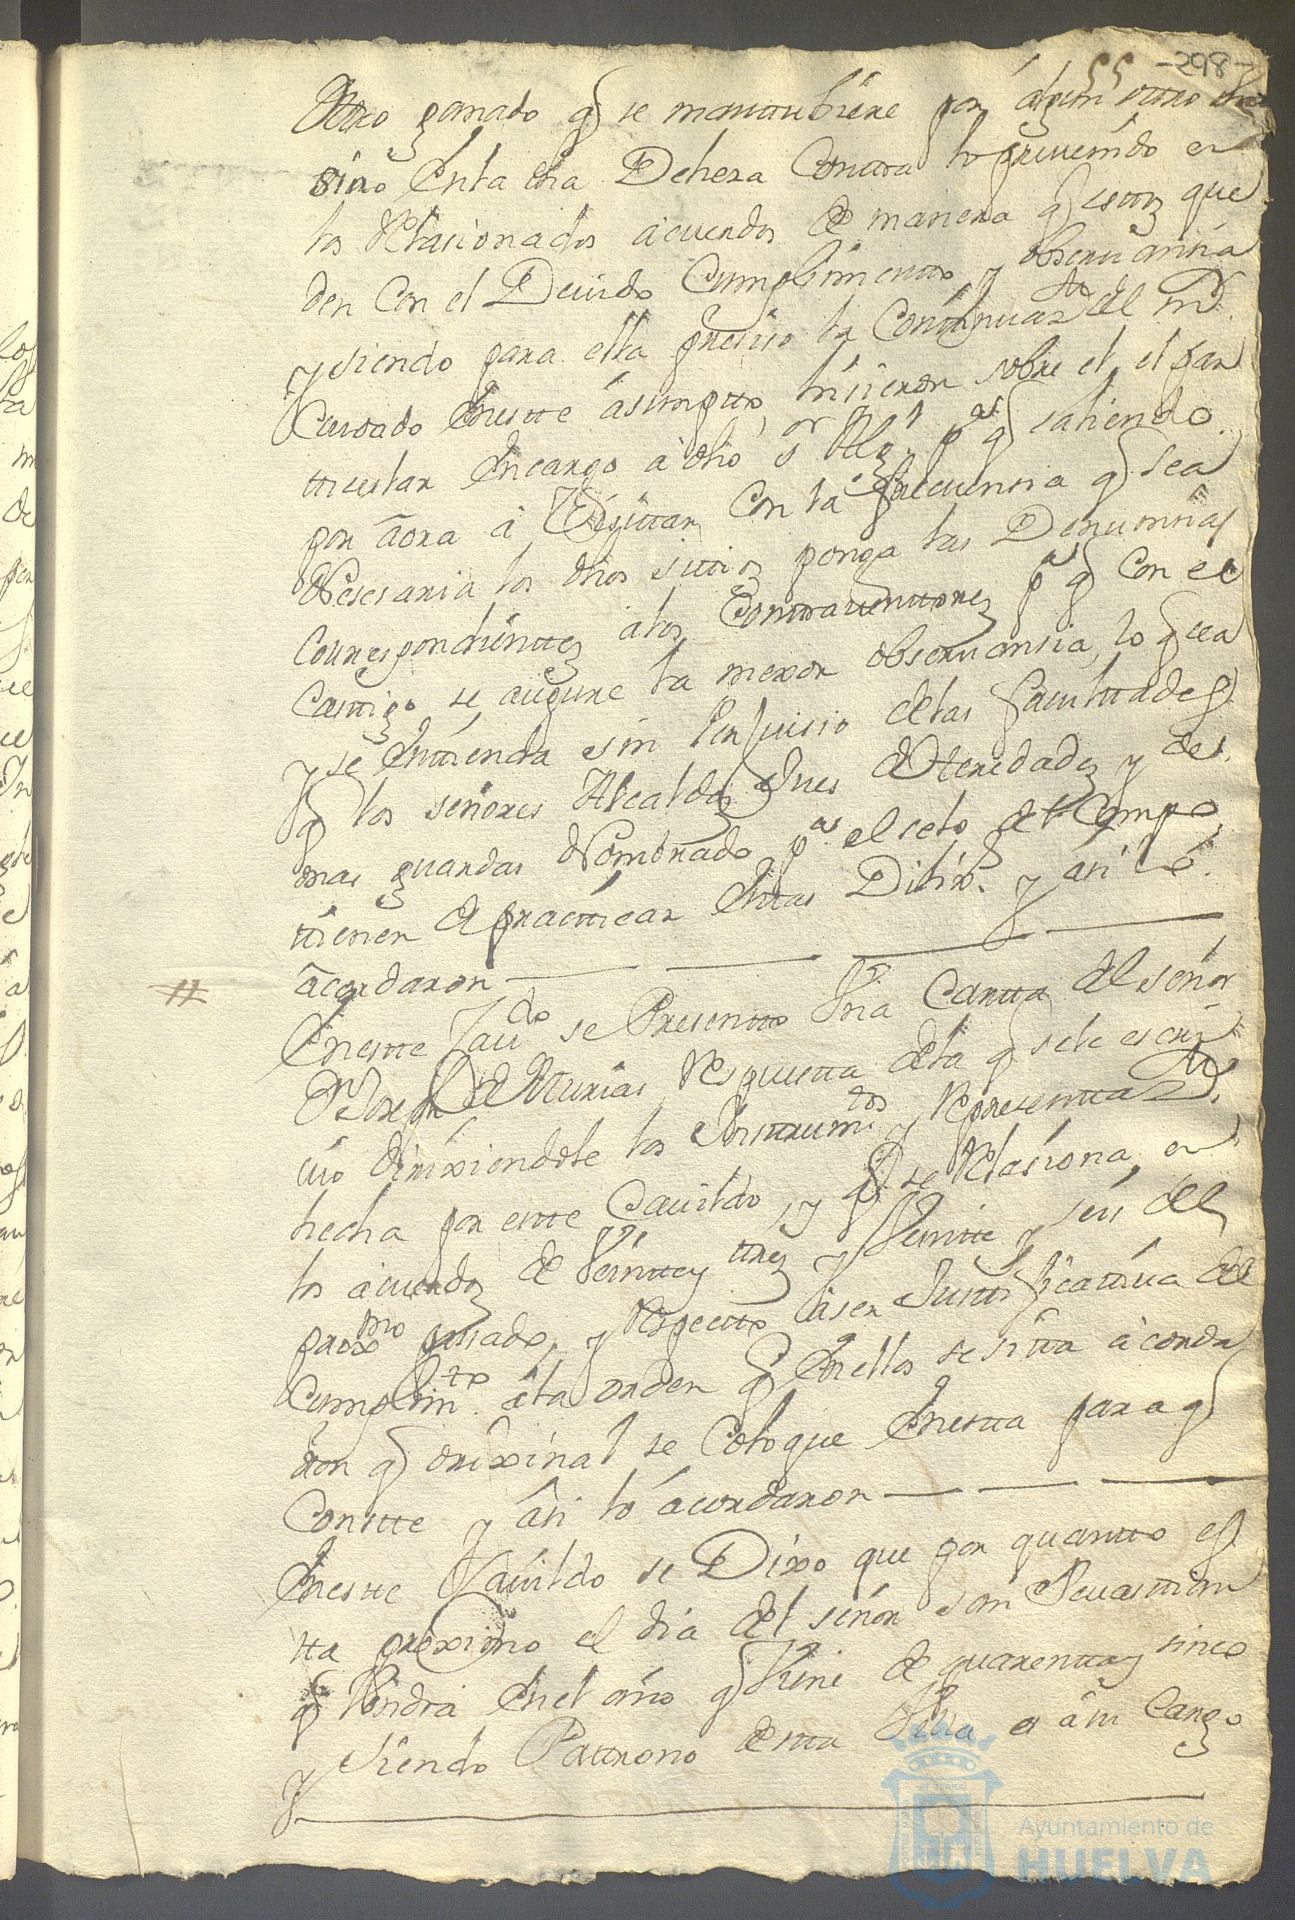 -298-
otro ganado q se mantubiere por algun otro
sino enla dha Dehesa Contra lo preuenido en
los Relasionados acuerdos de manera q estos que
den Con el Deuido Cumplimiento y obseruansia
y siendo para ella preciso la Continuaz.on del
Cuidado eneste asumpto, hisieron sobre el el par
ticular encargo a dho s.or Alg.l p.a q saliendo
por aora a Visitar Con la frecuensia q sea
Nesesaria los dhos sitios ponga las Denunsias
Correspondientes alos Contrauentores p.a q Con el
Castigo se asegure la mexor obseruansia, lo q sea
y se entienda sin Perjuisio delas facultades
q los señores Alcaldes Jues de Heredades y de
mas guardas Nombrados p.a el selo del Campo
tienen de practicar estas Dilix.s y asi lo
acordaron
Eneste Cau.do se Presento Vna Cartta del señor
Dn Joseph de Respuesta dela q sele escri
uio dirixiendole los Ynstrum.tos y Representaz.on
hecha por este Cauildo, y q se Relasiona en
los acuerdos de Veinttey tres y Veinte y seis del
prox.mo pasado, y Respecto aser Justificatiua del
Cumplim.to ala orden q enellos se sitta acorda
ron q orixinal se Coloque enesta para q
Conste y asi lo acordaron
Eneste Cauildo se Dixo que por quanto es
tta proximo el dia del señor san Seuastian
q Vendra enel año q Viene de quarenttay sinco
y siendo Pattrono desta Villa a su Cargo
Ayuntamiento de
HUELVA